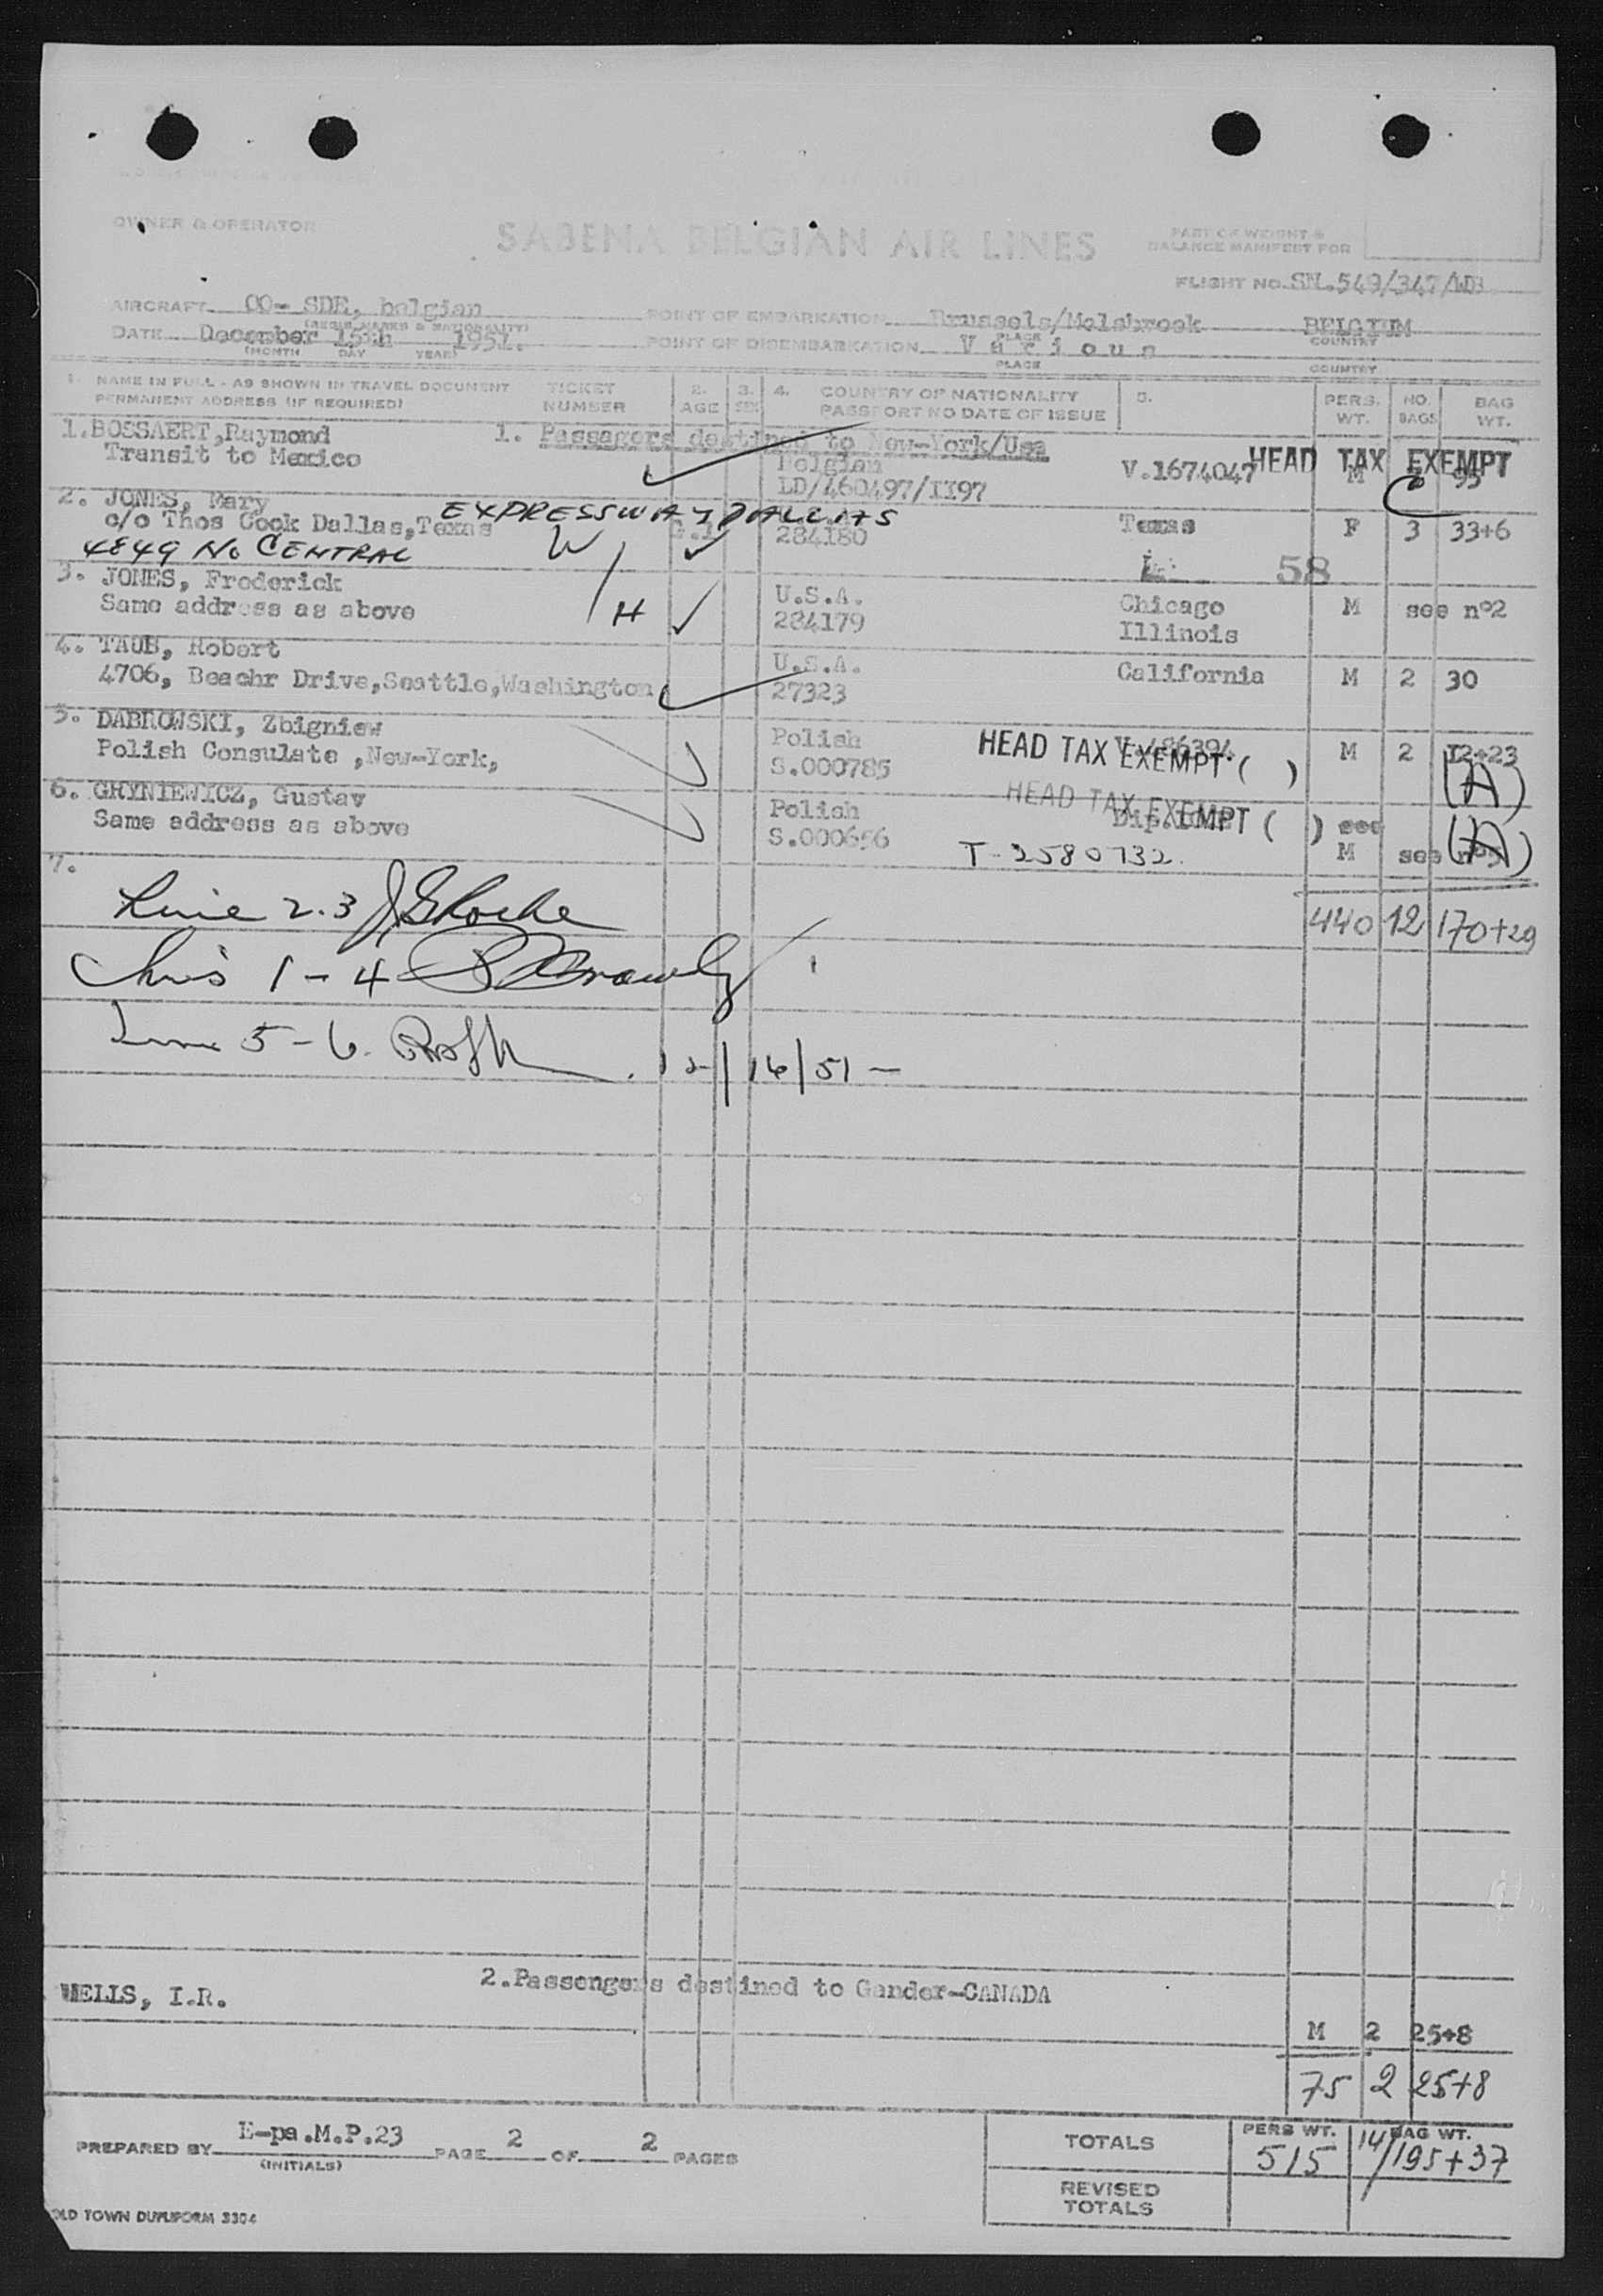 OWNER & OPERATOR
SABENA BELGIAN AIR LINES
PART OF WEIGHT &
BALANCE MANIFEST FOR
FLIGHT NO. SN.549/347/WB
AIRCRAFT OO- SDE, belgian
(REGIS. MARKS & NATIONALITY)
POINT OF EMBARKATION Brussels/Melsbroek BELGIUM
PLACE COUNTRY
DATE December 15th 1951.
(MONTH DAY YEAR)
POINT OF DISEMBARKATION V a r i o u s
PLACE COUNTRY
1. NAME IN FULL - AS SHOWN IN TRAVEL DOCUMENT
PERMANENT ADDRESS (IF REQUIRED)
TICKET
NUMBER
2.
AGE
3.
SEX
4. COUNTRY OF NATIONALITY
PASSPORT NO DATE OF ISSUE
5.
PERS.
WT.
NO.
BAGS
BAG
WT.
1. Passagers destined to New-York/Usa
1.BOSSAERT,Raymond
Transit to Mexico
Belgian
LD/460497/1197
V.1674047 HEAD TAX EXEMPT
M 95
2. JONES, Mary
c/o Thos Cook Dallas,Texas
4849 No CENTRAL EXPRESSWAY DALLAS
W
284180
Texas F 3 33+6
58
3. JONES, Frederick
Same address as above
H
U.S.A.
284179
Chicago
Illinois
M see nº2
4. TAUB, Robert
4706, Beachr Drive,Seattle,Washington
U.S.A.
27323
California M 2 30
5. DABROWSKI, Zbigniew
Polish Consulate ,New-York,
Polish
S.000785
V.486394
HEAD TAX EXEMPT ( )
M 2 12+23
(A)
6. GRYNIEWICZ, Gustav
Same address as above
Polish
S.000656
HEAD TAX EXEMPT ( )
T-2580732.
M see nº5
(A)
7.
Line 2.3
440 12 170+29
1 - 4
Line 5-6. 12/16/51 -
2.Passengers destined to Gander-CANADA
WELLS, I.R.
M 2 25+8
75 2 25+8
PREPARED BY E-pa.M.P.23 PAGE 2 OF 2 PAGES
(INITIALS)
TOTALS
PERS WT.
515
BAG WT.
14/195+37
REVISED
TOTALS
OLD TOWN DUPLIFORM 3304